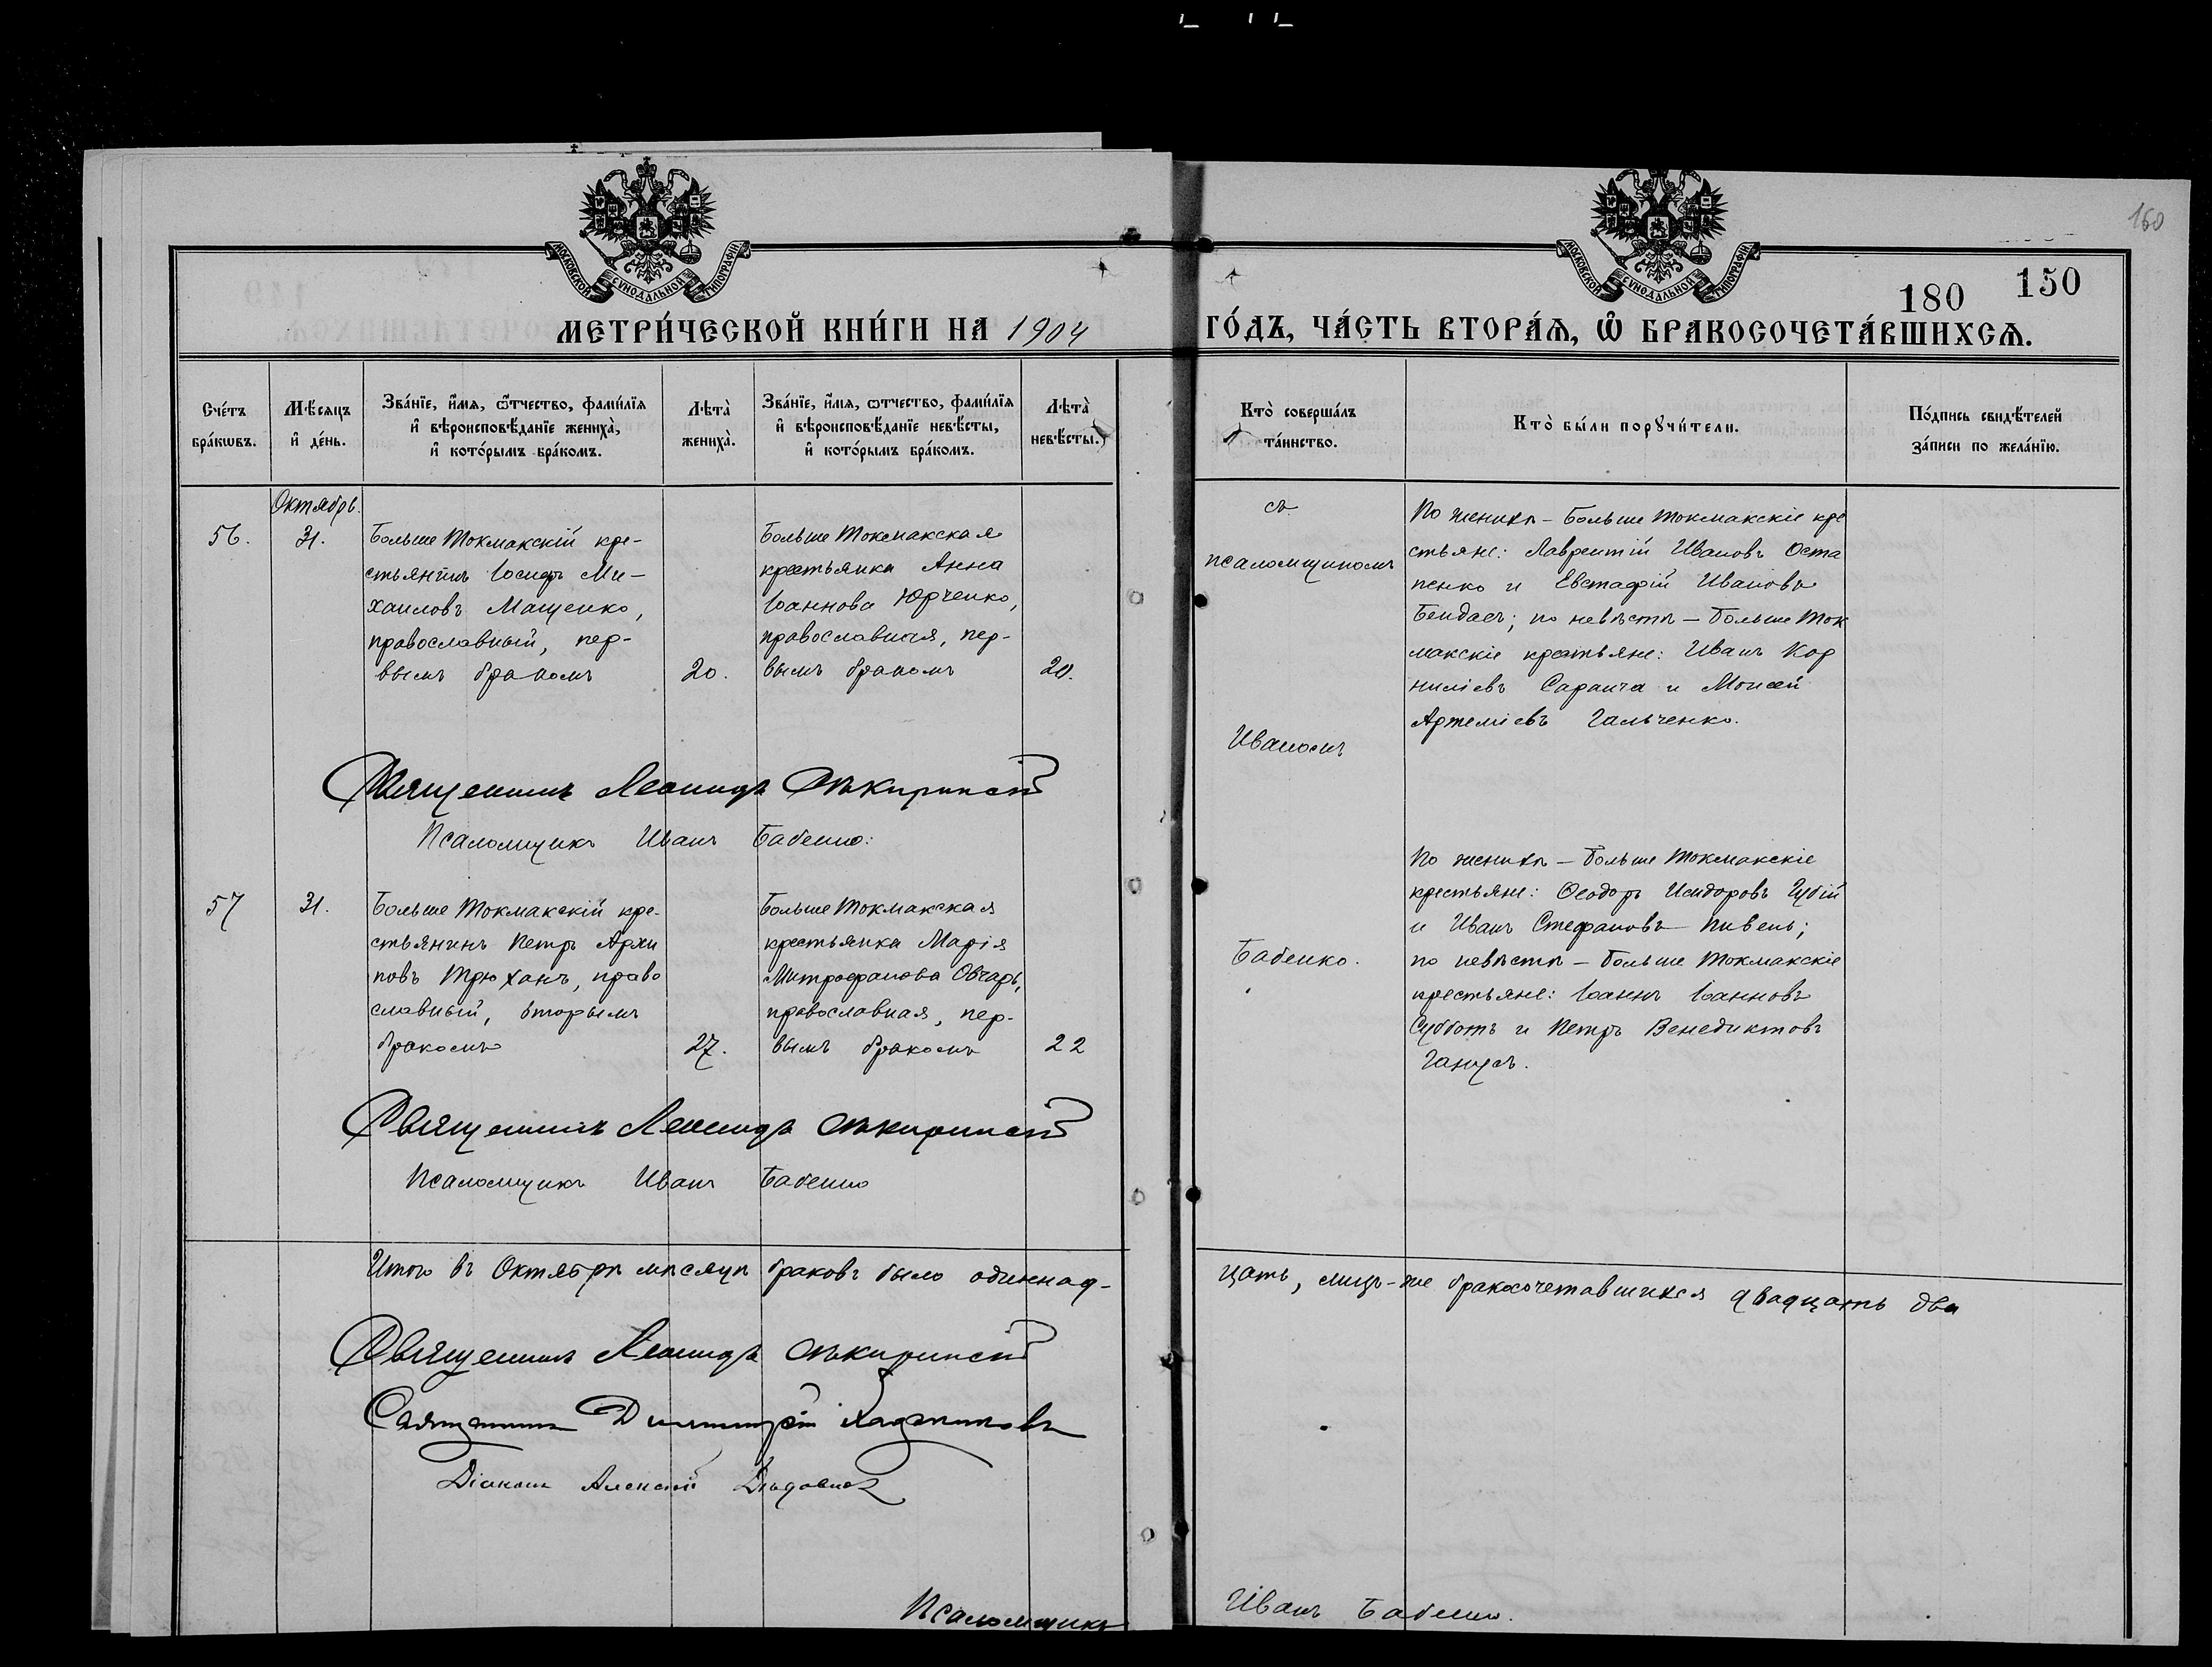 160
МОСКОВСКОЙ СѴНОДАЛЬНОЙ ТИПОГРАФІИ
МОСКОВСКОЙ СѴНОДАЛЬНОЙ ТИПОГРАФІИ
180 150
МЕТРИ́ЧЕСКОЙ КНИ́ГИ НА 1904 ГО́ДЪ, ЧА́СТЬ ВТОРА́Ѧ, Ѡ҆ БРАКОСОЧЕТА́ВШИХСѦ.
Сче́тъ
бра́кѡвъ.
Мѣ́сѧцъ
и҆ де́нь.
Зва́нїе, и҆́мѧ, ѻ҆́тчество, фами́лїѧ
и҆ вѣроисповѣ́данїе жениха̀,
и҆ кото́рымъ бра́комъ.
Лѣта̀
жениха̀.
Зва́нїе, и҆́мѧ, ѻ҆́тчество, фами́лїѧ
и҆ вѣроисповѣ́данїе невѣ́сты,
и҆ кото́рымъ бра́комъ.
Лѣта̀
невѣ́сты.
Кто̀ соверша́лъ
та́инство.
Кто̀ бы́ли порꙋчи́тели.
По́дпись свидѣ́телей
за́писи по жела́нїю.
Октябрь.
56.
31.
Больше Токмакскій кре-
стьянинъ Іосифъ Ми-
хаиловъ Мащенко,
православный, пер-
вымъ бракомъ
20.
Больше Токмакская
крестьянка Анна
Іоаннова Юрченко,
православная, пер-
вымъ бракомъ
20.
съ
псаломщикомъ
Иваномъ
Бабенко.
По женихѣ – Больше Токмакскіе кре
стьяне: Лаврентій Ивановъ Оста
пенко и Евстафій Ивановъ
Бендасъ; по невѣстѣ – Больше Ток
макскіе крестьяне: Иванъ Кор
ниліевъ Саранча и Моисей
Артеміевъ Гальченко.
Священникъ Леонидъ
Псаломщикъ Иванъ Бабенко.
57
31.
Больше Токмакскій кре-
стьянинъ Петръ Архи
повъ Трюханъ, право
славный, вторымъ
бракомъ
27.
Больше Токмакская
крестьянка Марія
Митрофанова Овчаръ,
православная, пер-
вымъ бракомъ
22
По женихѣ – Больше Токмакскіе
крестьяне: Ѳеодоръ Исидоровъ Губій
и Иванъ Стефановъ Пивень;
по невѣстѣ – Больше Токмакскіе
крестьяне: Іоаннъ Іоанновъ
Субботъ и Петръ Венедиктовъ
Священникъ Леонидъ
Псаломщикъ Иванъ Бабенко
Итого въ Октябрѣ мѣсяцѣ браковъ было одиннад-
цать, лицъ-же бракосочетавшихся двадцать два
Священникъ Леонидъ
Священникъ Димитрій
Діаконъ Алексій
Псаломщикъ Иванъ Бабенко.